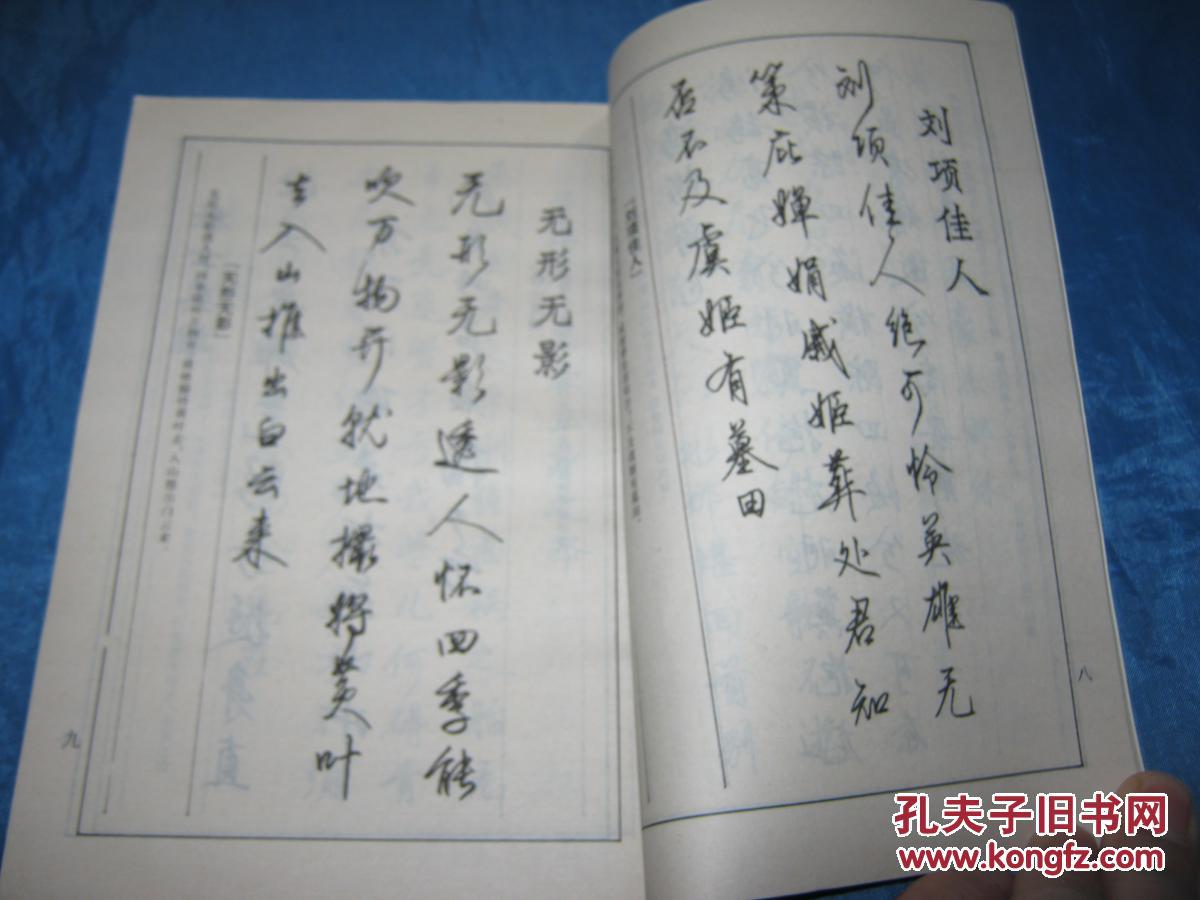 刘项佳人
刘项佳人绝可怜英雄无
策庇婵娟戚姬葬处君知
否不及虞姬有墓田
八
无形无影
无形无影透人怀四季能
吹万物开就地撮将黄叶
去入山推出白云来
「无形无影」
九
孔夫子旧书网
www.kongfz.com